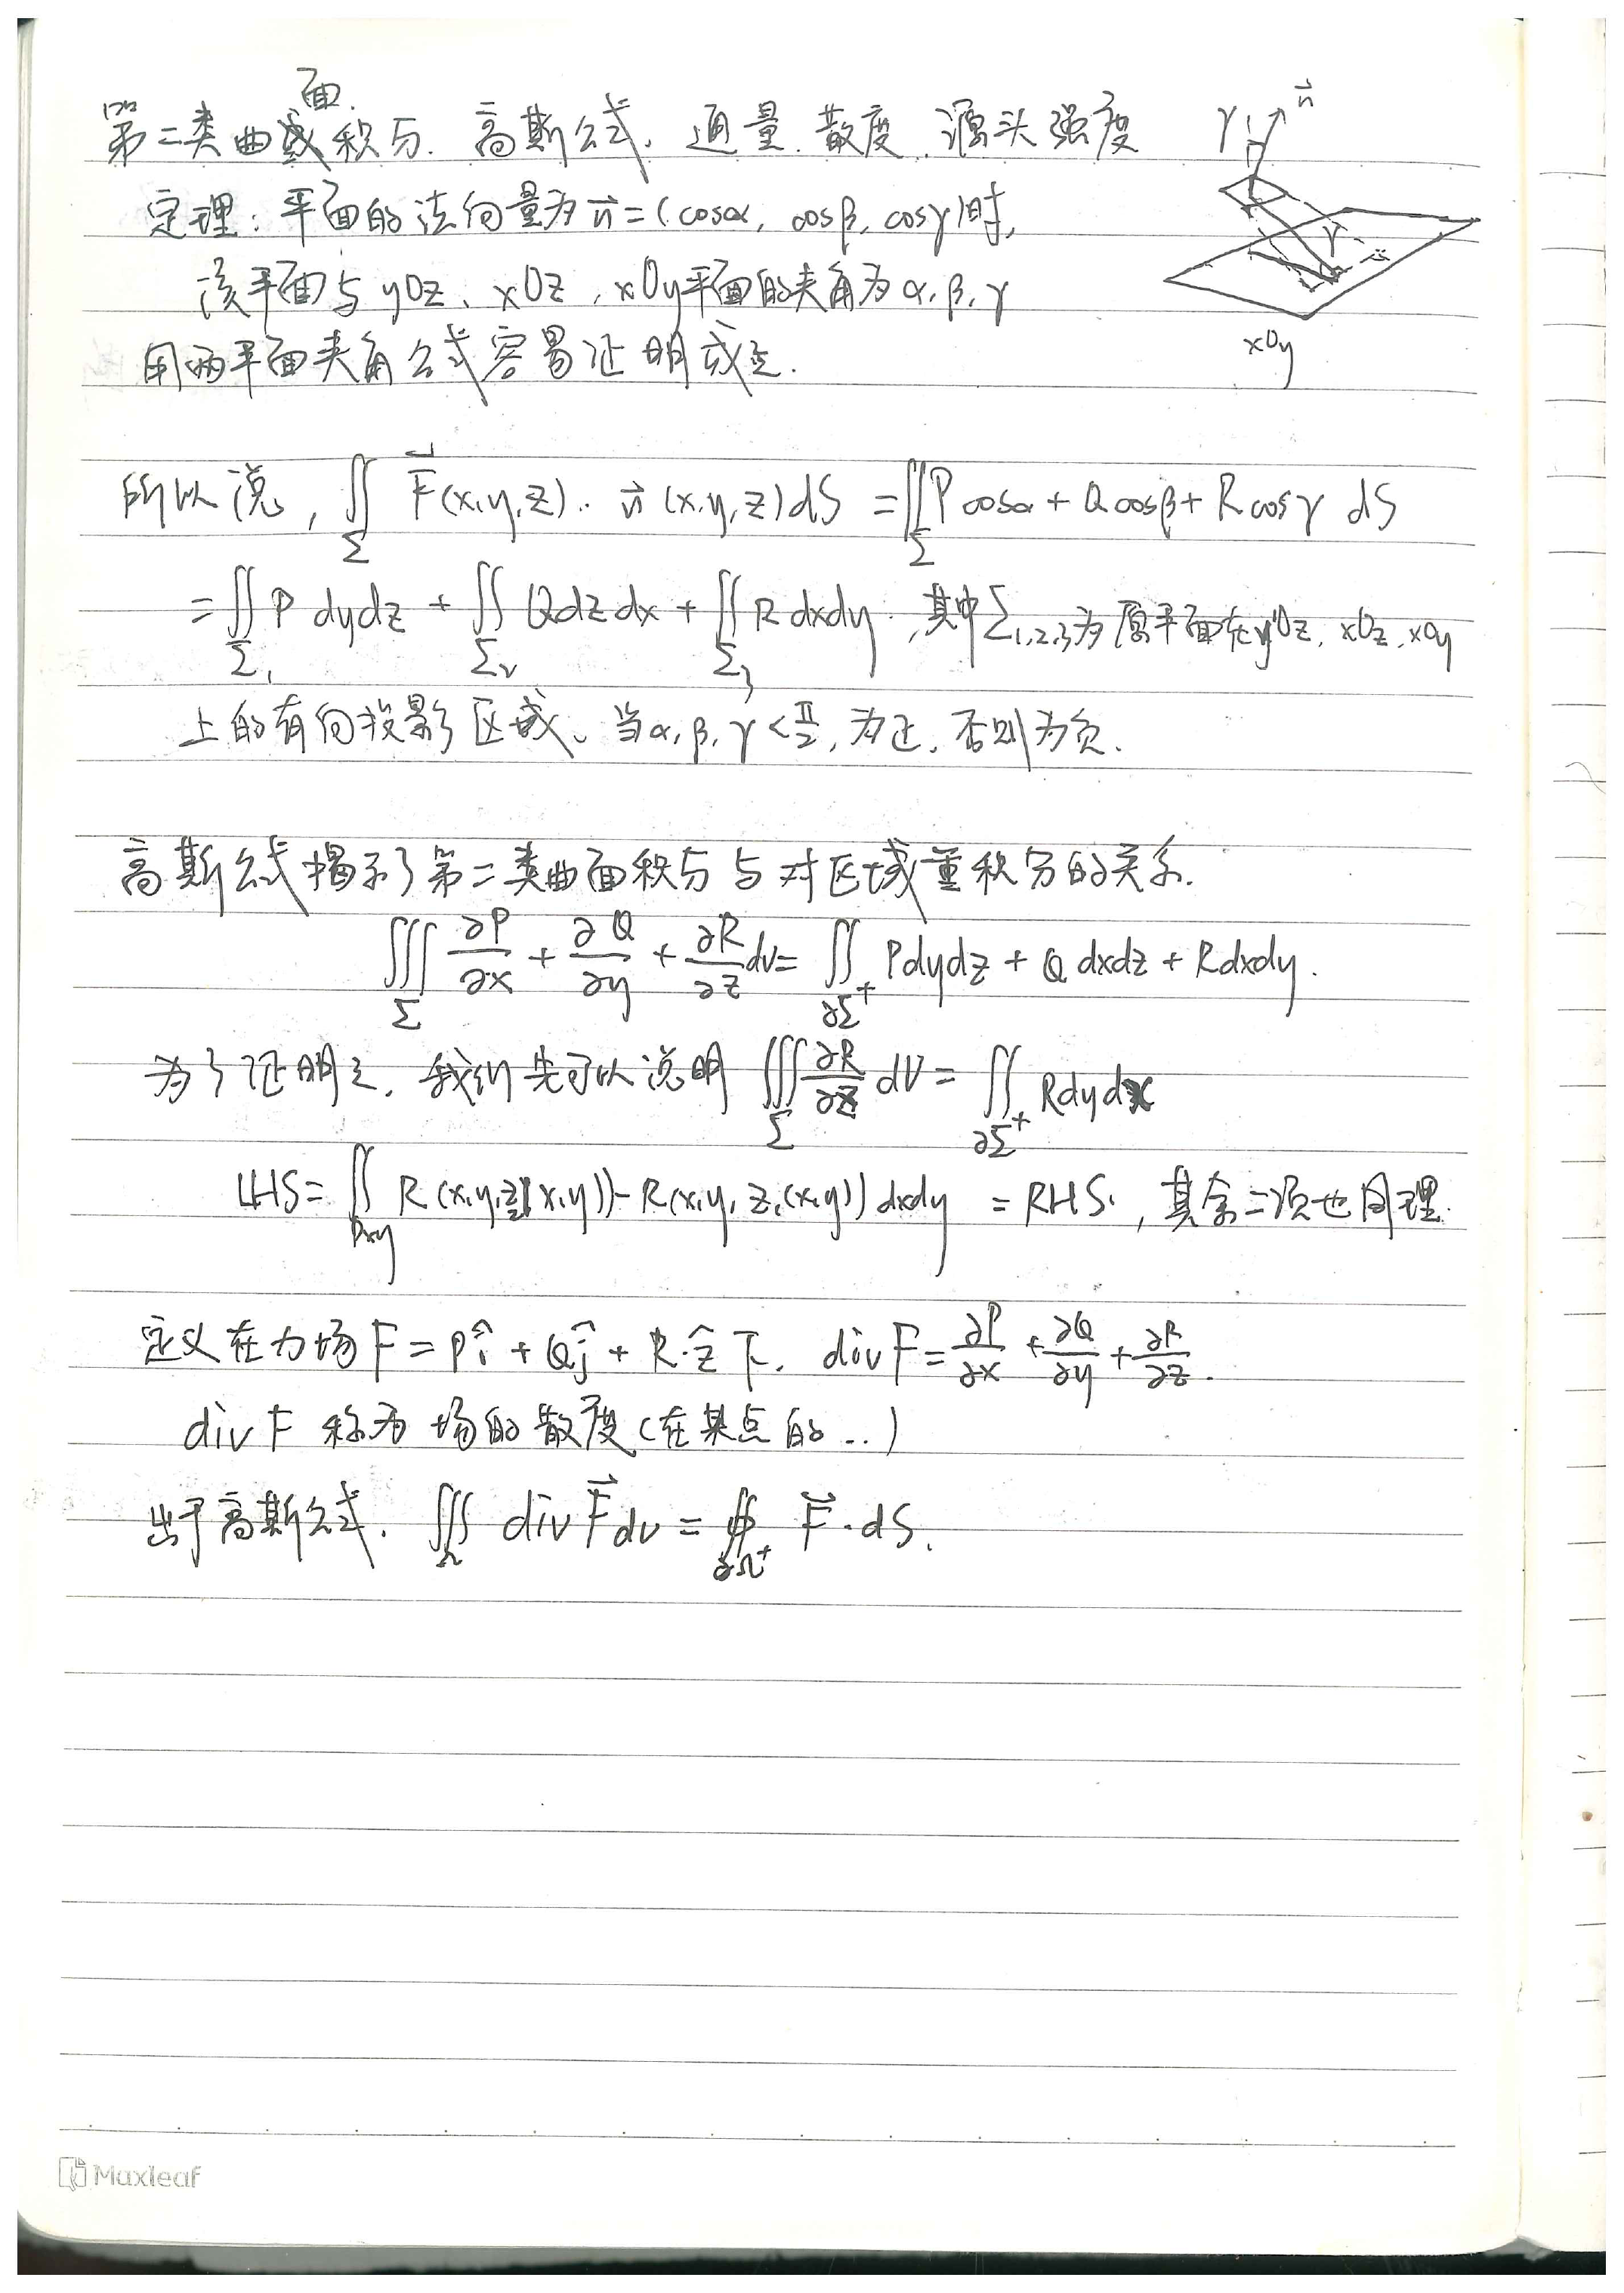 第二类曲面积分. 高斯公式. 通量. 散度. 源头强度
定理: 平面的法向量为 n⃗=(cosα, cosβ, cosγ)时,
该平面与 yOz、xOz, xOy平面的夹角为 α, β, γ
用两平面夹角公式容易证明成立.
γ n⃗
γ
xOy
所以说, ∬_Σ F⃗(x,y,z)·n⃗(x,y,z)dS = ∬_Σ Pcosα + Qcosβ + Rcosγ dS
= ∬_Σ₁ P dydz + ∬_Σ₂ Qdzdx + ∬_Σ₃ R dxdy, 其中Σ₁,₂,₃为原平面在yOz, xOz, xOy
上的有向投影区域. 当α, β, γ < π/2, 为正, 否则为负.
高斯公式揭示了第二类曲面积分与对区域重积分的关系.
∭_Σ ∂P/∂x + ∂Q/∂y + ∂R/∂z dv = ∬_∂Σ⁺ Pdydz + Q dxdz + Rdxdy.
为了证明之, 我们先可以说明 ∭_Σ ∂R/∂z dV = ∬_∂Σ⁺ Rdydx
LHS = ∬_Dxy R(x,y,z₂(x,y)) - R(x,y,z₁(x,y)) dxdy = RHS., 其余二项也同理.
定义在力场 F = Pî + Qĵ + R·ẑ 下, div F = ∂P/∂x + ∂Q/∂y + ∂R/∂z.
div F 称为场的散度(在某点的...)
出于高斯公式, ∭_Ω div F⃗ dv = ∯_∂Ω⁺ F⃗·dS.
Maxleaf